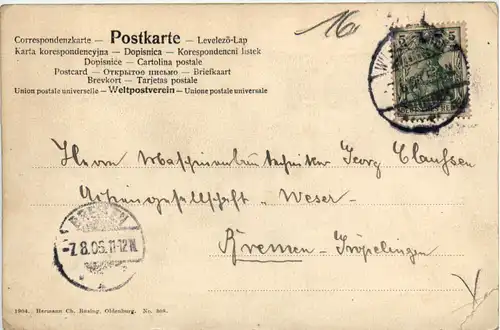 16
Correspondenzkarte — Postkarte — Levelező-Lap
Karta korespondencyjna — Dopisnica — Korespondencni listek
Dopisnice — Cartolina postale
Postcard — Открытое письмо — Briefkaart
Brevkort — Tarjetas postale
Union postale universelle — Weltpostverein — Unione postale universale
5 5
Herrn Maschinenbautechniker Georg Claussen
Actiengesellschaft „Weser"
Bremen-Gröpelingen
BREMEN
-7.8.05.11-12N.
1904. Hermann Ch. Büsing, Oldenburg. No.